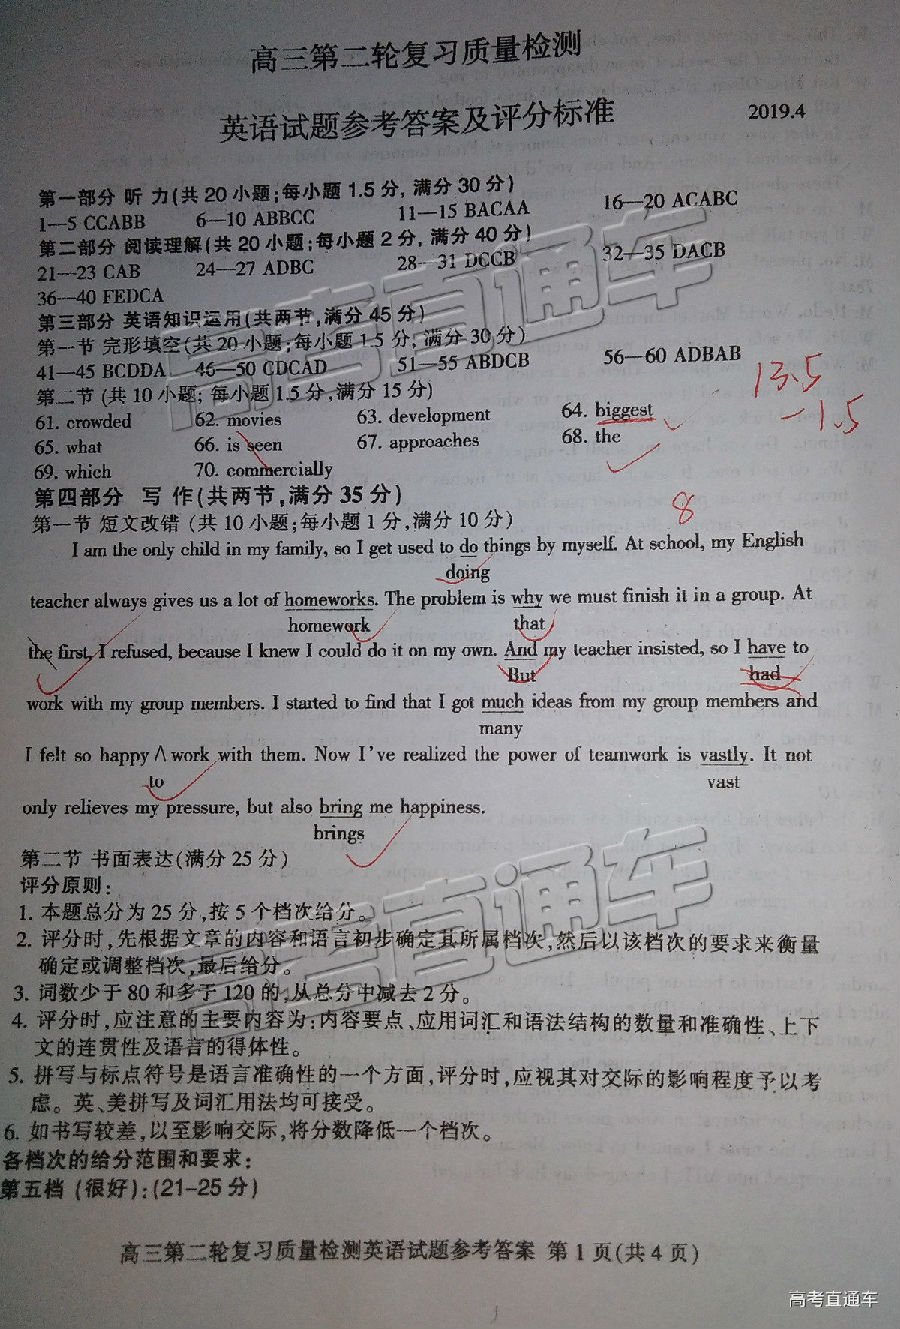 高三第二轮复习质量检测
英语试题参考答案及评分标准 2019.4
第一部分 听 力(共 20 小题;每小题 1.5 分, 满分 30 分)
1—5 CCABB 6—10 ABBCC 11—15 BACAA 16—20 ACABC
第二部分 阅读理解(共 20 小题;每小题 2 分, 满分 40 分)
21—23 CAB 24—27 ADBC 28—31 DCCB 32—35 DACB
36—40 FEDCA
第三部分 英语知识运用(共两节,满分 45 分)
第一节 完形填空(共 20 小题;每小题 1.5 分,满分 30 分)
41—45 BCDDA 46—50 CDCAD 51—55 ABDCB 56—60 ADBAB
13.5
第二节 (共 10 小题; 每小题 1.5 分,满分 15 分)
-1.5
61. crowded 62. movies 63. development 64. biggest
65. what 66. is seen 67. approaches 68. the
69. which 70. commercially
第四部分 写 作(共两节,满分 35 分)
8
第一节 短文改错 (共 10 小题;每小题 1 分,满分 10 分)
I am the only child in my family, so I get used to do things by myself. At school, my English
doing
teacher always gives us a lot of homeworks. The problem is why we must finish it in a group. At
homework that
the first, I refused, because I knew I could do it on my own. And my teacher insisted, so I have to
But had
work with my group members. I started to find that I got much ideas from my group members and
many
I felt so happy ∧ work with them. Now I've realized the power of teamwork is vastly. It not
to vast
only relieves my pressure, but also bring me happiness.
brings
第二节 书面表达(满分 25 分)
评分原则:
1. 本题总分为 25 分,按 5 个档次给分。
2. 评分时,先根据文章的内容和语言初步确定其所属档次,然后以该档次的要求来衡量
确定或调整档次,最后给分。
3. 词数少于 80 和多于 120 的,从总分中减去 2 分。
4. 评分时,应注意的主要内容为:内容要点、应用词汇和语法结构的数量和准确性、上下
文的连贯性及语言的得体性。
5. 拼写与标点符号是语言准确性的一个方面,评分时,应视其对交际的影响程度予以考
虑。英、美拼写及词汇用法均可接受。
6. 如书写较差,以至影响交际,将分数降低一个档次。
各档次的给分范围和要求:
第五档 (很好):(21-25 分)
高三第二轮复习质量检测英语试题参考答案 第 1 页(共 4 页)
高考直通车
高考直通车
高考直通车